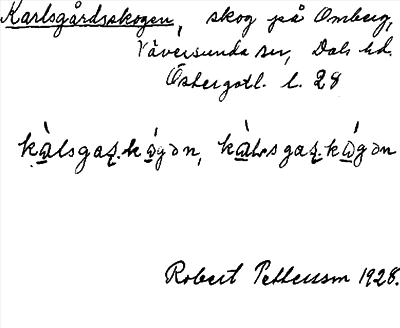 Karlsgårdsskogen, skog på Omberg,
Väversunda sn, Dals hd.
Östergötl. l. 28
kàlsgaʂ.kógən, kàlsgaʂ.kógən
Robert Pettersson 1928.